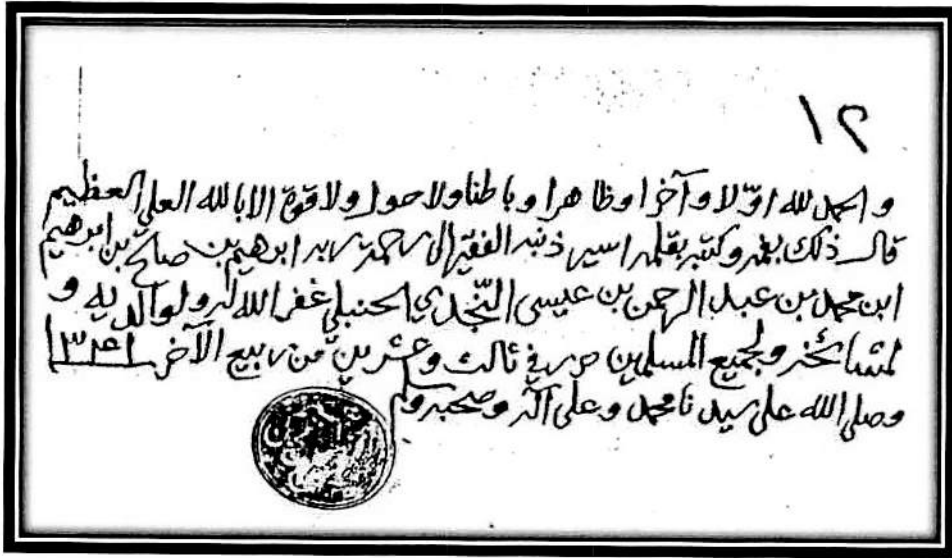 ١٢
والحمد لله اوّلا وآخرا وظاهرا وباطنا ولا حول ولا قوة الا بالله العلي العظيم
قال ذلك بفمه وكتبه بقلمه اسير ذنبه الفقير الى رحمة ربه ابرهيم بن صالح بن ابرهيم
ابن محمد بن عبد الرحمن بن عيسى النّجدي الحنبلي غفر الله له ولوالديه و
لمشائخه ولجميع المسلمين حرر في ثالث وعشرين من ربيع الآخر
وصلى الله على سيدنا محمد وعلى آله وصحبه وسلم